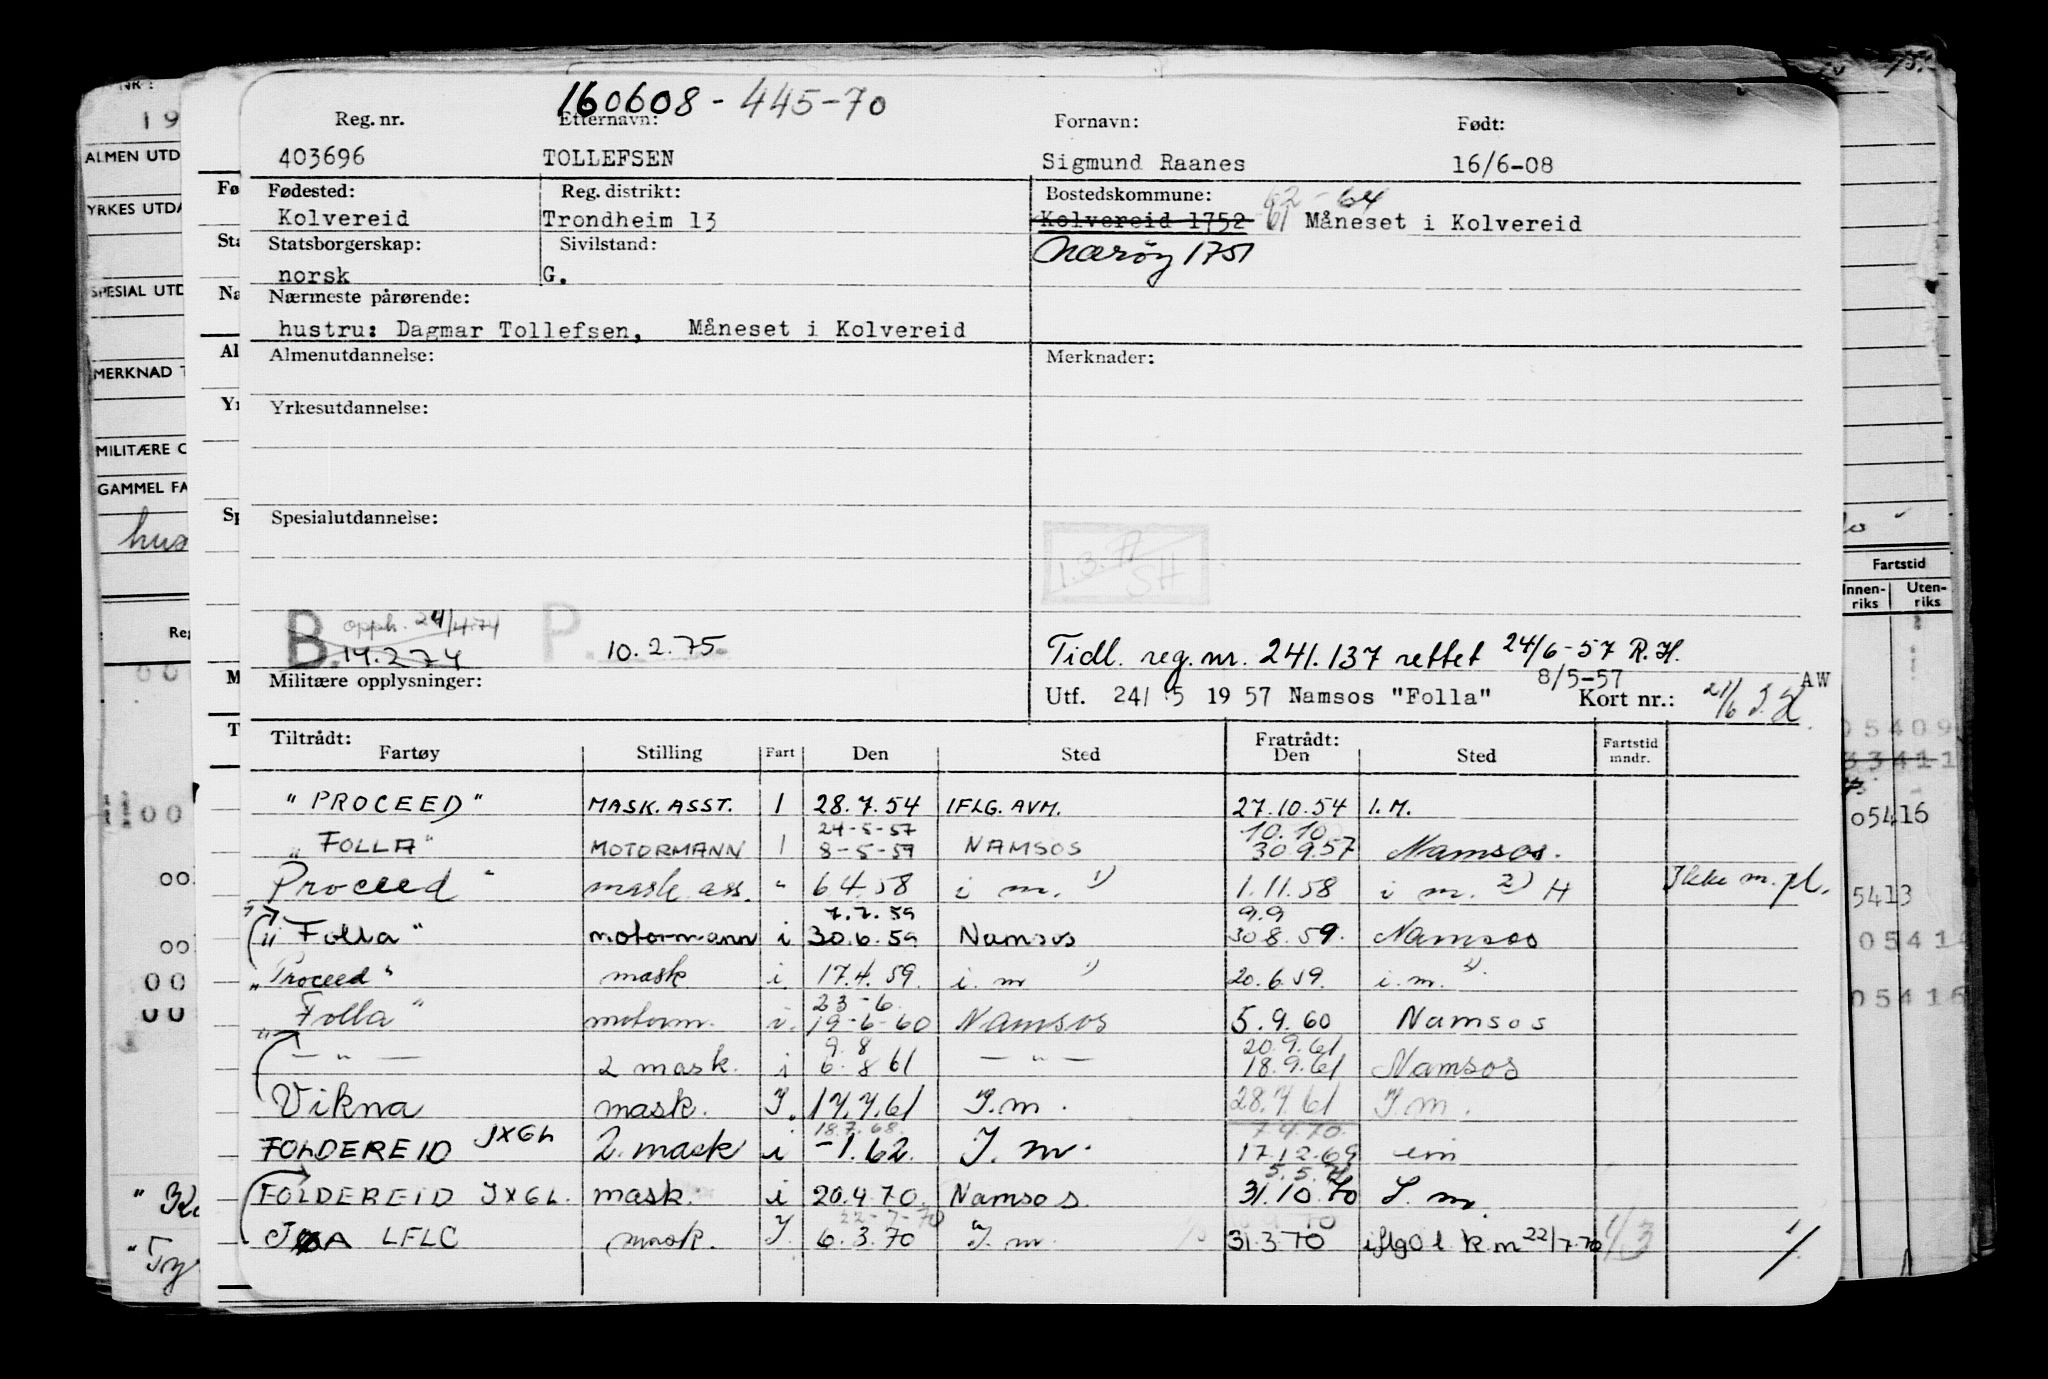 160608 - 445-70
Reg. nr. Etternavn: Fornavn: Født:
403696 TOLLEFSEN Sigmund Raanes 16/6-08
Fødested: Reg. distrikt: Bostedskommune: 62-64
Kolvereid Trondheim 13 Kolvereid 1752 61 Måneset i Kolvereid
Statsborgerskap: Sivilstand: Nærøy 1751
norsk G.
Nærmeste pårørende:
hustru: Dagmar Tollefsen, Måneset i Kolvereid
Almenutdannelse: Merknader:
Yrkesutdannelse:
Spesialutdannelse:
1.3.77 SH
B. opph. 24/4.74 P.
14.2 74 10.2.75 Tidl. reg. nr. 241.137 rettet 24/6-57 R.H.
Militære opplysninger: 8/5-57 AW
Utf. 24/ 5 19 57 Namsos "Folla" Kort nr.: 21/6
Tiltrådt: Fratrådt:
Fartøy Stilling Fart Den Sted Den Sted Fartstid mndr.
"PROCEED" MASK. ASST. I 28.7.54 IFLG. AVM. 27.10.54 I.M.
24-5-57 10.10
"FOLLA" MOTORMANN I 8-5-57 NAMSOS 30.9.57 Namsos.
Proceed " mask ass. " 6.4.58 i m. 1) 1.11.58 i m. 2) H Ikke m. pl.
7.7.59 9.9
"Folla" motormann i 30.6.59 Namsos 30 8.59. Namsos
"Proceed" mask i. 17.4.59. i. m 1) 20.6.59. i. m.
23-6.
"Folla" motorm. i. 19-6-60 Namsos 5.9.60 Namsos
9.8 20.9.61
— " — 2 mask. i 6.8 61 — " — 18.9.61 Namsos
Vikna mask. I. 17.7.61 I.m. 28.7 61 I m.
18.7.68. 7.4.70.
FOLDEREID JXGL 2. mask i -1.62. I. m. 17.12.69 im
5.5.71
FOLDEREID JXGL. mask. i 20.4.70. Namsos. 31.10.70 I. m.
22-7-70
LFLC mask. I. 6.3.70 I. m. 31.3 70 iflg O l. k. m 22/7.70 1/3 1/.
NR:
19
ALMEN UTD
YRKES UTDA
SPESIAL UTD
MERKNAD T
MILITÆRE O
GAMMEL FA
hus
Fartstid
Innen-riks Uten-riks
05409
33411
05416
5413
0541
05416